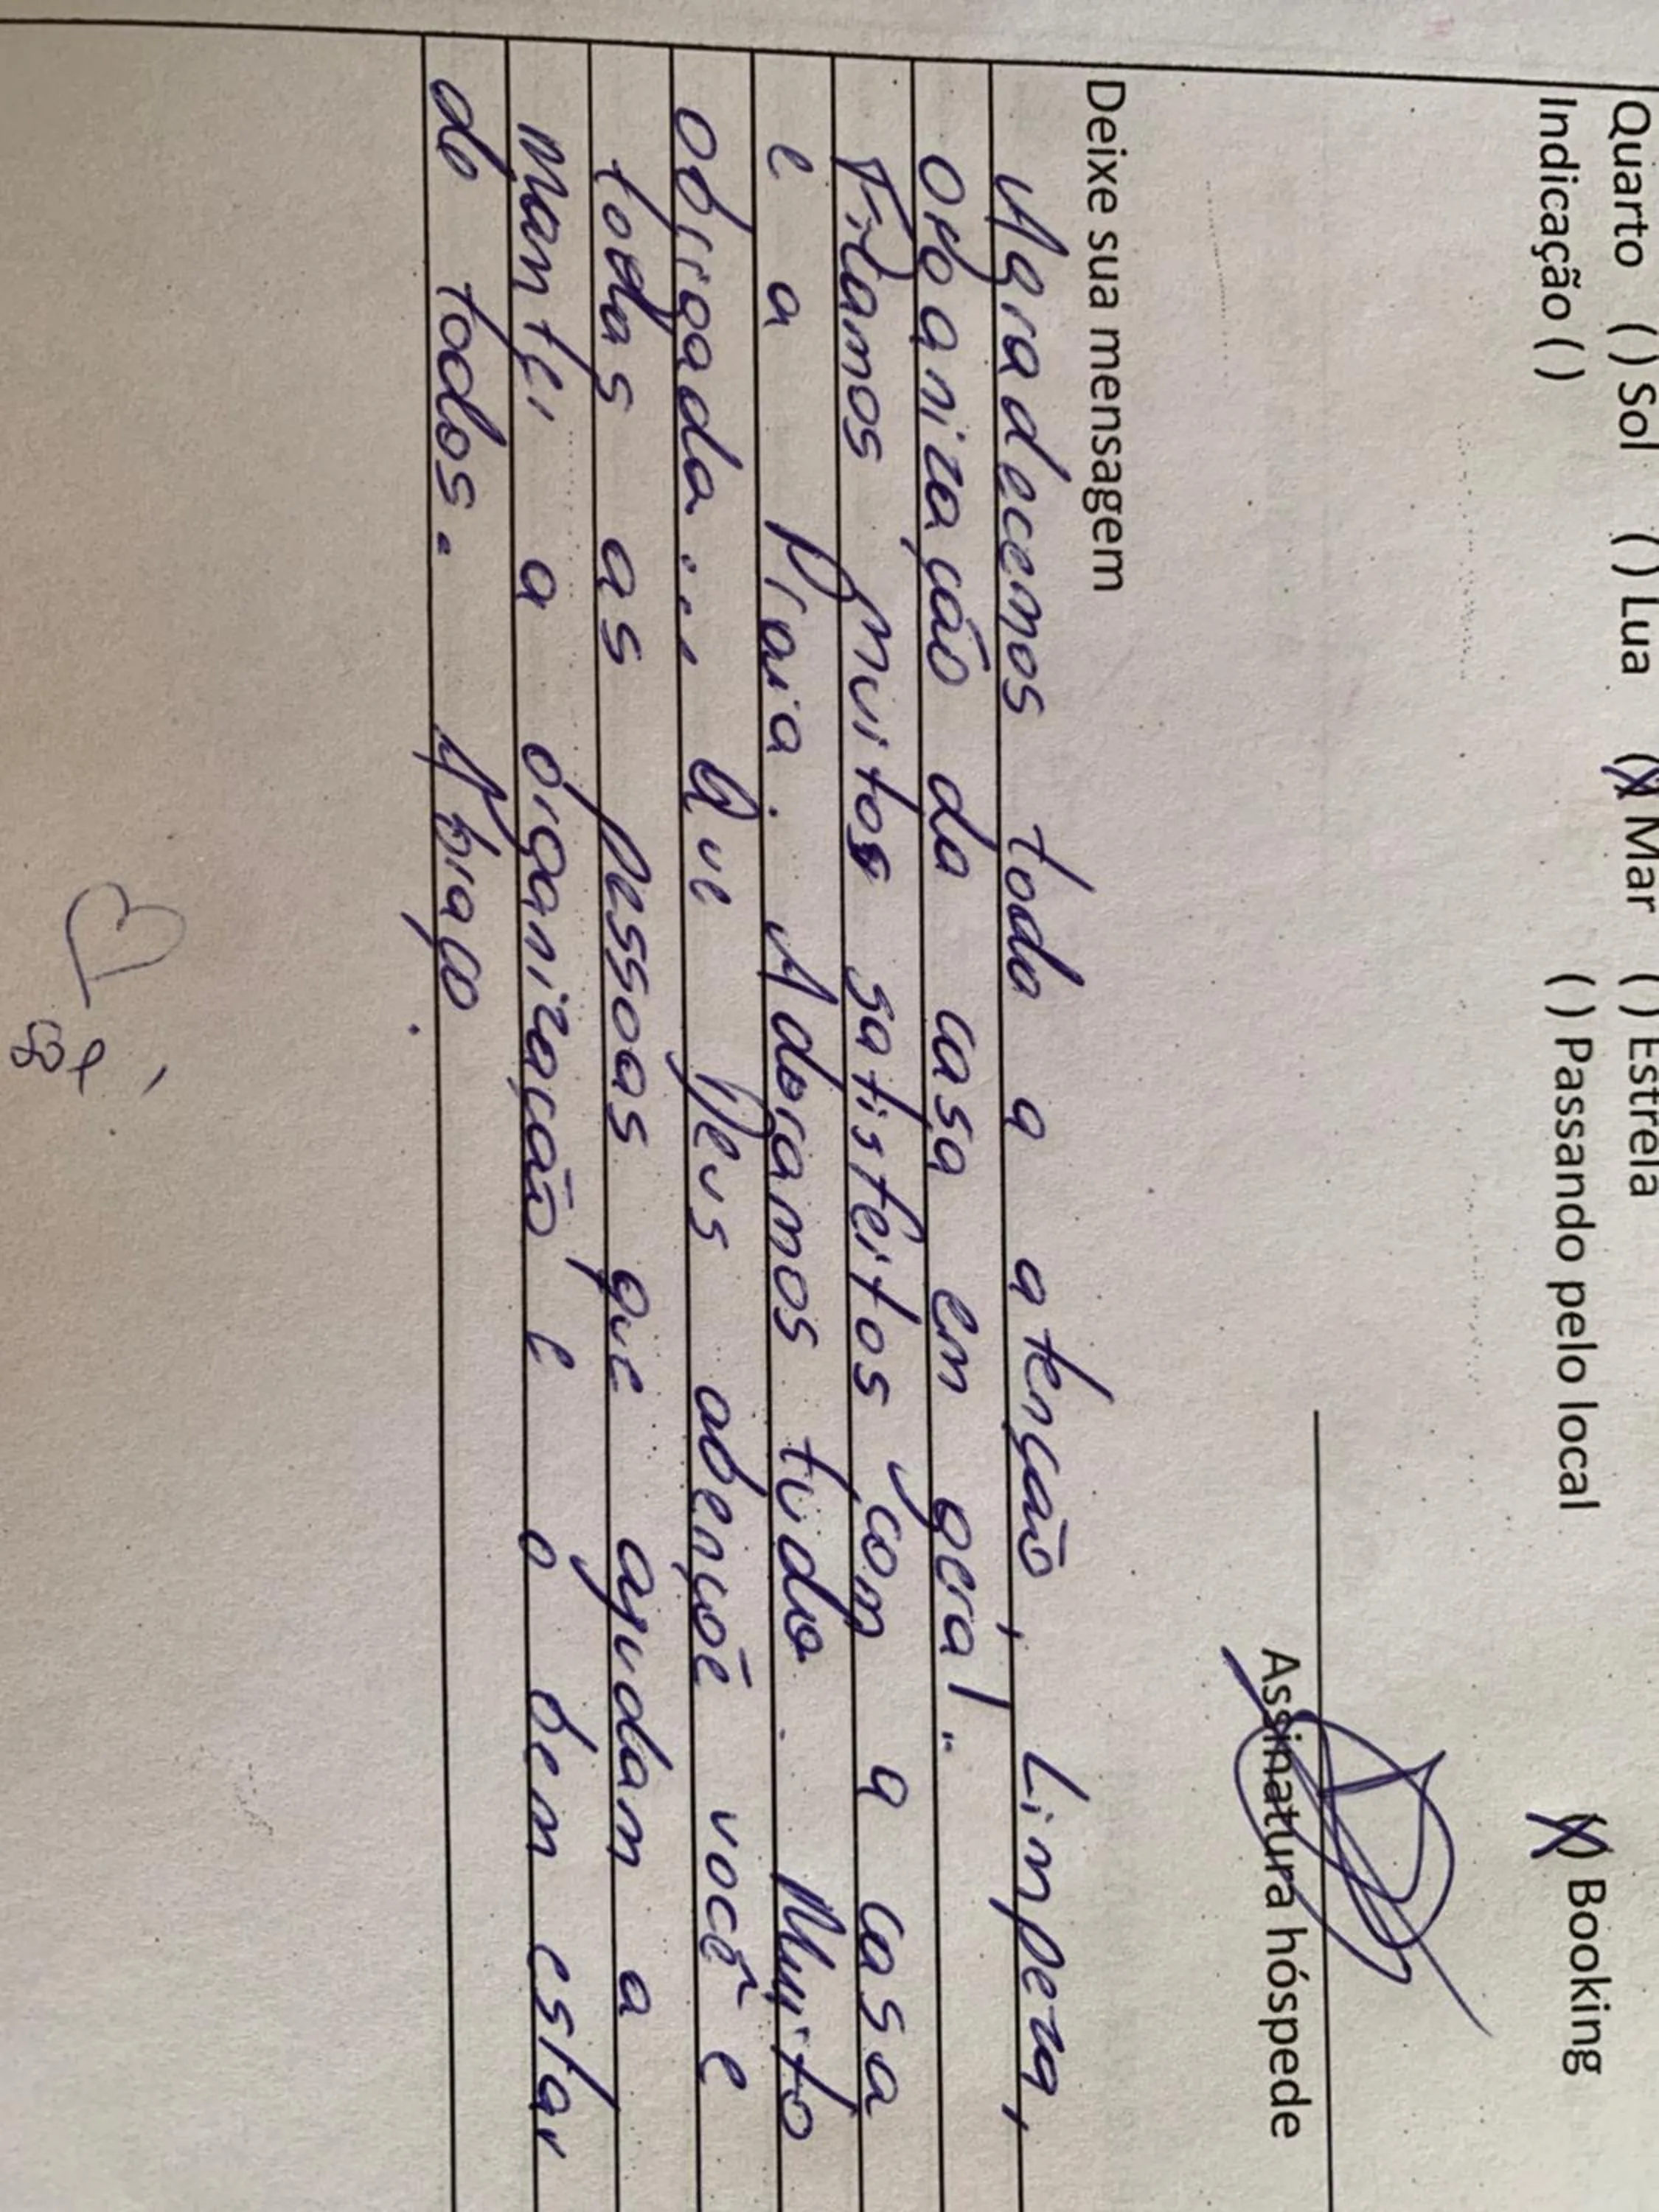 Quarto ( ) Sol ( ) Lua (X) Mar ( ) Estrela
Indicação ( ) ( ) Passando pelo local (X) Booking
Assinatura hóspede
Deixe sua mensagem
Agradecemos toda a atenção, Limpeza,
organização da casa em geral..
Ficamos muitos satisfeitos com a casa
e a Praia. Adoramos tudo. Muito
obrigada... Que Deus abençõe você e
todas as pessoas que ajudam a
manter a organização e o bem estar
de todos. Abraço.